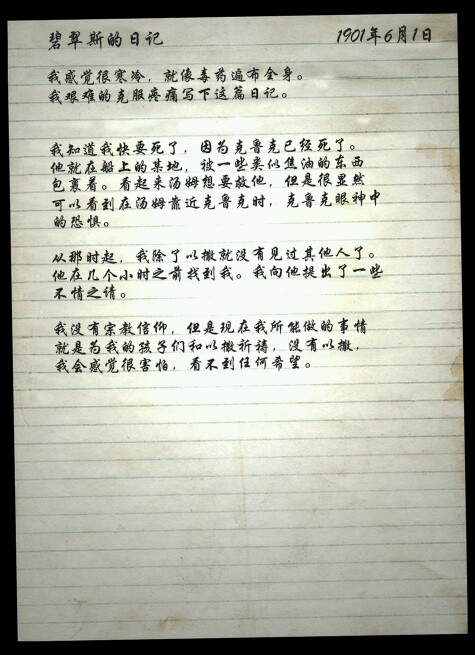 碧翠斯的日记 1901年6月1日
我感觉很寒冷，就像毒药遍布全身。
我艰难的克服疼痛写下这篇日记。
我知道我快要死了，因为克鲁克已经死了。
他就在船上的某地，被一些类似焦油的东西
包裹着。看起来汤姆想要救他，但是很显然
可以看到在汤姆靠近克鲁克时，克鲁克眼神中
的恐惧。
从那时起，我除了以撒就没有见过其他人了。
他在几个小时之前找到我。我向他提出了一些
不情之请。
我没有宗教信仰，但是现在我所能做的事情
就是为我的孩子们和以撒祈祷，没有以撒，
我会感觉很害怕，看不到任何希望。